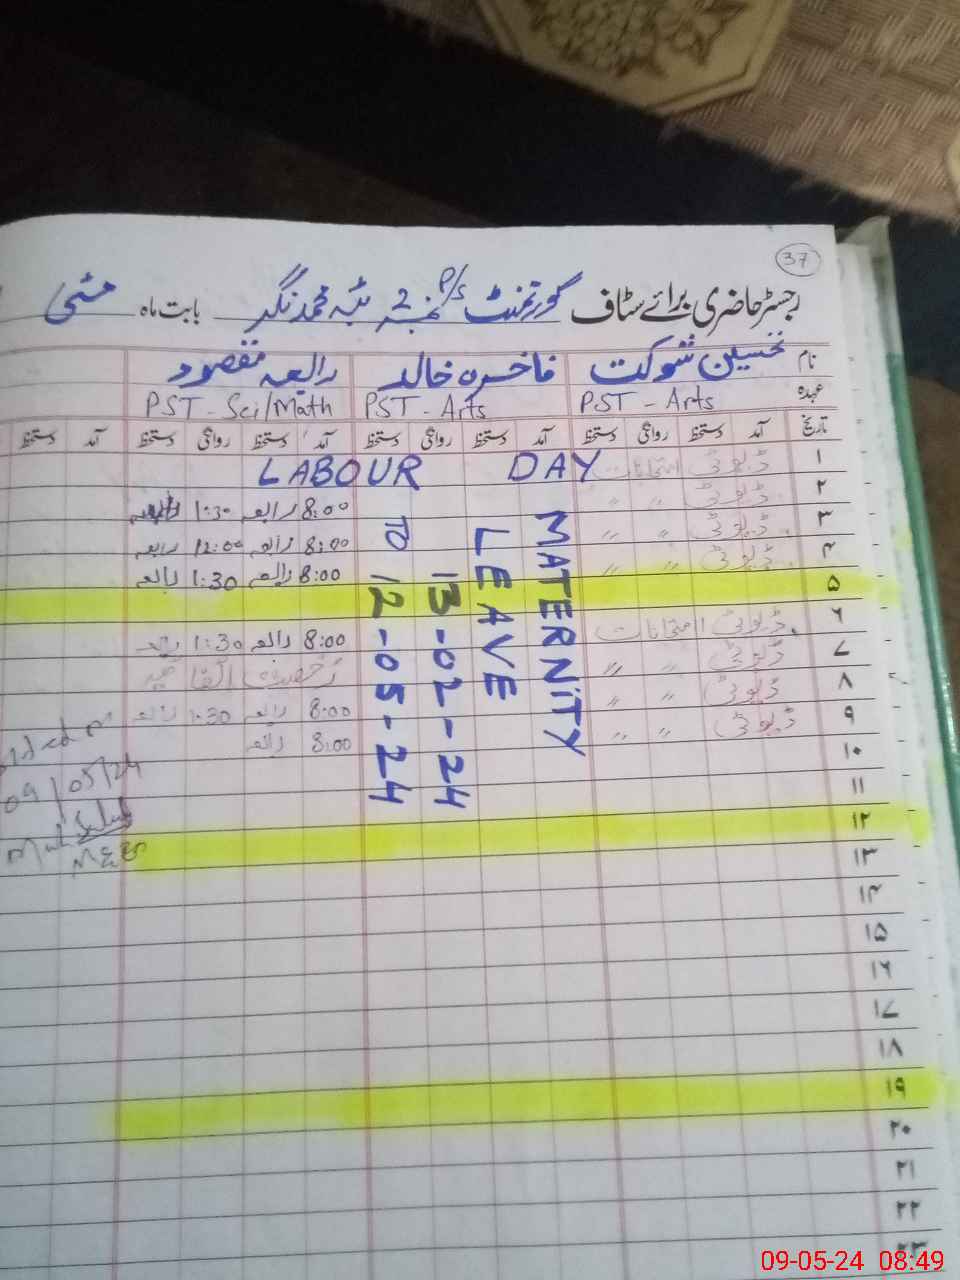 37
رجسٹر حاضری برائے سٹاف گورنمنٹ P/S نمبر 2 ٹبہ محمد نگر بابت ماہ مئی
نام تحسین شوکت فاخرہ خالد رابعہ مقصود
عہدہ PST - Arts PST - Arts PST - Sci/Math
تاریخ آمد دستخط روانگی دستخط آمد دستخط روانگی دستخط آمد دستخط روانگی دستخط آمد دستخط
۱ ڈیوٹی امتحانات LABOUR DAY
۲ ڈیوٹی " " 8:00 رابعہ 1:30 رابعہ
۳ ڈیوٹی " " 8:00 رابعہ 12:00 رابعہ
۴ ڈیوٹی " " 8:00 رابعہ 1:30 رابعہ
۵
۶ ڈیوٹی امتحانات 8:00 رابعہ 1:30 رابعہ
۷ ڈیوٹی " " رخصت اتفاقیہ
۸ ڈیوٹی " " 8:00 رابعہ 1:30 رابعہ
۹ ڈیوٹی " " 8:00 رابعہ
۱۰
۱۱
۱۲
۱۳
۱۴
۱۵
۱۶
۱۷
۱۸
۱۹
۲۰
۲۱
۲۲
۲۳
MATERNITY
LEAVE
13-02-24
TO 12-05-24
09/05/24
09-05-24 08:49